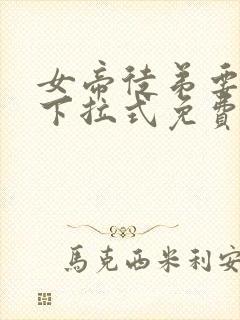 女帝徒弟要
下拉式免費
馬克西米利安